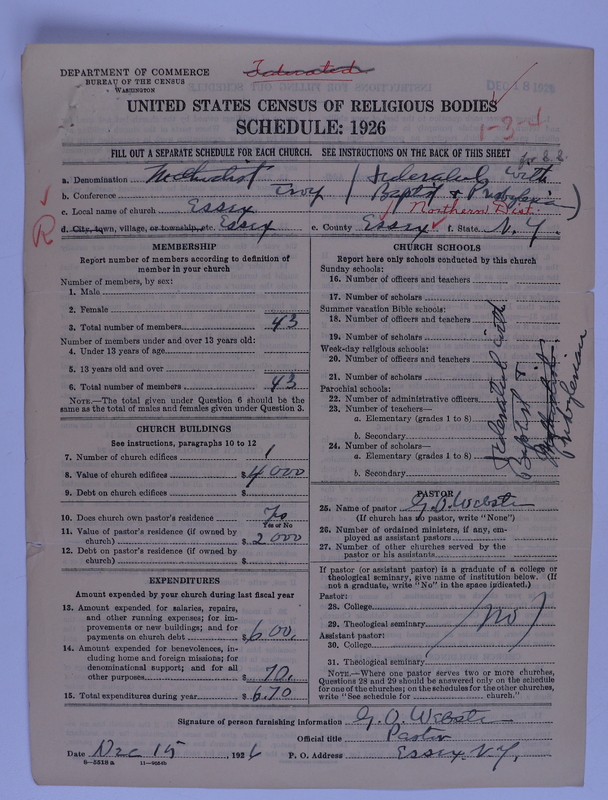 DEPARTMENT OF COMMERCE
BUREAU OF THE CENSUS
WASHINGTON
Federated
DEC 18 1926
UNITED STATES CENSUS OF RELIGIOUS BODIES
SCHEDULE: 1926
1-3-4
FILL OUT A SEPARATE SCHEDULE FOR EACH CHURCH. SEE INSTRUCTIONS ON THE BACK OF THIS SHEET
a. Denomination Methodist (Federated with
b. Conference Troy Baptist & Presbyterian)
c. Local name of church Essex Northern Bapt.
R
d. City, town, village, or township, etc. Essex e. County Essex f. State N.Y.
MEMBERSHIP
Report number of members according to definition of
member in your church
Number of members, by sex:
1. Male
2. Female
3. Total number of members 43
Number of members under and over 13 years old:
4. Under 13 years of age
5. 13 years old and over
6. Total number of members 43
NOTE.—The total given under Question 6 should be the
same as the total of males and females given under Question 3.
CHURCH BUILDINGS
See instructions, paragraphs 10 to 12
7. Number of church edifices 1
8. Value of church edifices $ 4000
9. Debt on church edifices $
10. Does church own pastor's residence
Yes or No
11. Value of pastor's residence (if owned by
church) $ 2000
12. Debt on pastor's residence (if owned by
church) $
EXPENDITURES
Amount expended by your church during last fiscal year
13. Amount expended for salaries, repairs,
and other running expenses; for im-
provements or new buildings; and for
payments on church debt $ 600.
14. Amount expended for benevolences, in-
cluding home and foreign missions; for
denominational support; and for all
other purposes $ 70.
15. Total expenditures during year $ 670
CHURCH SCHOOLS
Report here only schools conducted by this church
Sunday schools:
16. Number of officers and teachers
17. Number of scholars
Summer vacation Bible schools:
18. Number of officers and teachers
19. Number of scholars
Week-day religious schools:
20. Number of officers and teachers
21. Number of scholars
Parochial schools:
22. Number of administrative officers
23. Number of teachers—
a. Elementary (grades 1 to 8)
b. Secondary
24. Number of scholars—
a. Elementary (grades 1 to 8)
b. Secondary
Federated with
Baptist &
Presbyterian
PASTOR
25. Name of pastor G. O. Webster
(If church has no pastor, write "None")
26. Number of ordained ministers, if any, em-
ployed as assistant pastors
27. Number of other churches served by the
pastor or his assistants
If pastor (or assistant pastor) is a graduate of a college or
theological seminary, give name of institution below. (If
not a graduate, write "No" in the space indicated.)
Pastor:
28. College
29. Theological seminary (No)
Assistant pastor:
30. College
31. Theological seminary
NOTE.—Where one pastor serves two or more churches,
Questions 28 and 29 should be answered only on the schedule
for one of the churches; on the schedules for the other churches,
write "See schedule for church."
Signature of person furnishing information G. O. Webster
Official title Pastor
Date Dec 15, 1926 P. O. Address Essex N.Y.
8—5518a 11—9054b